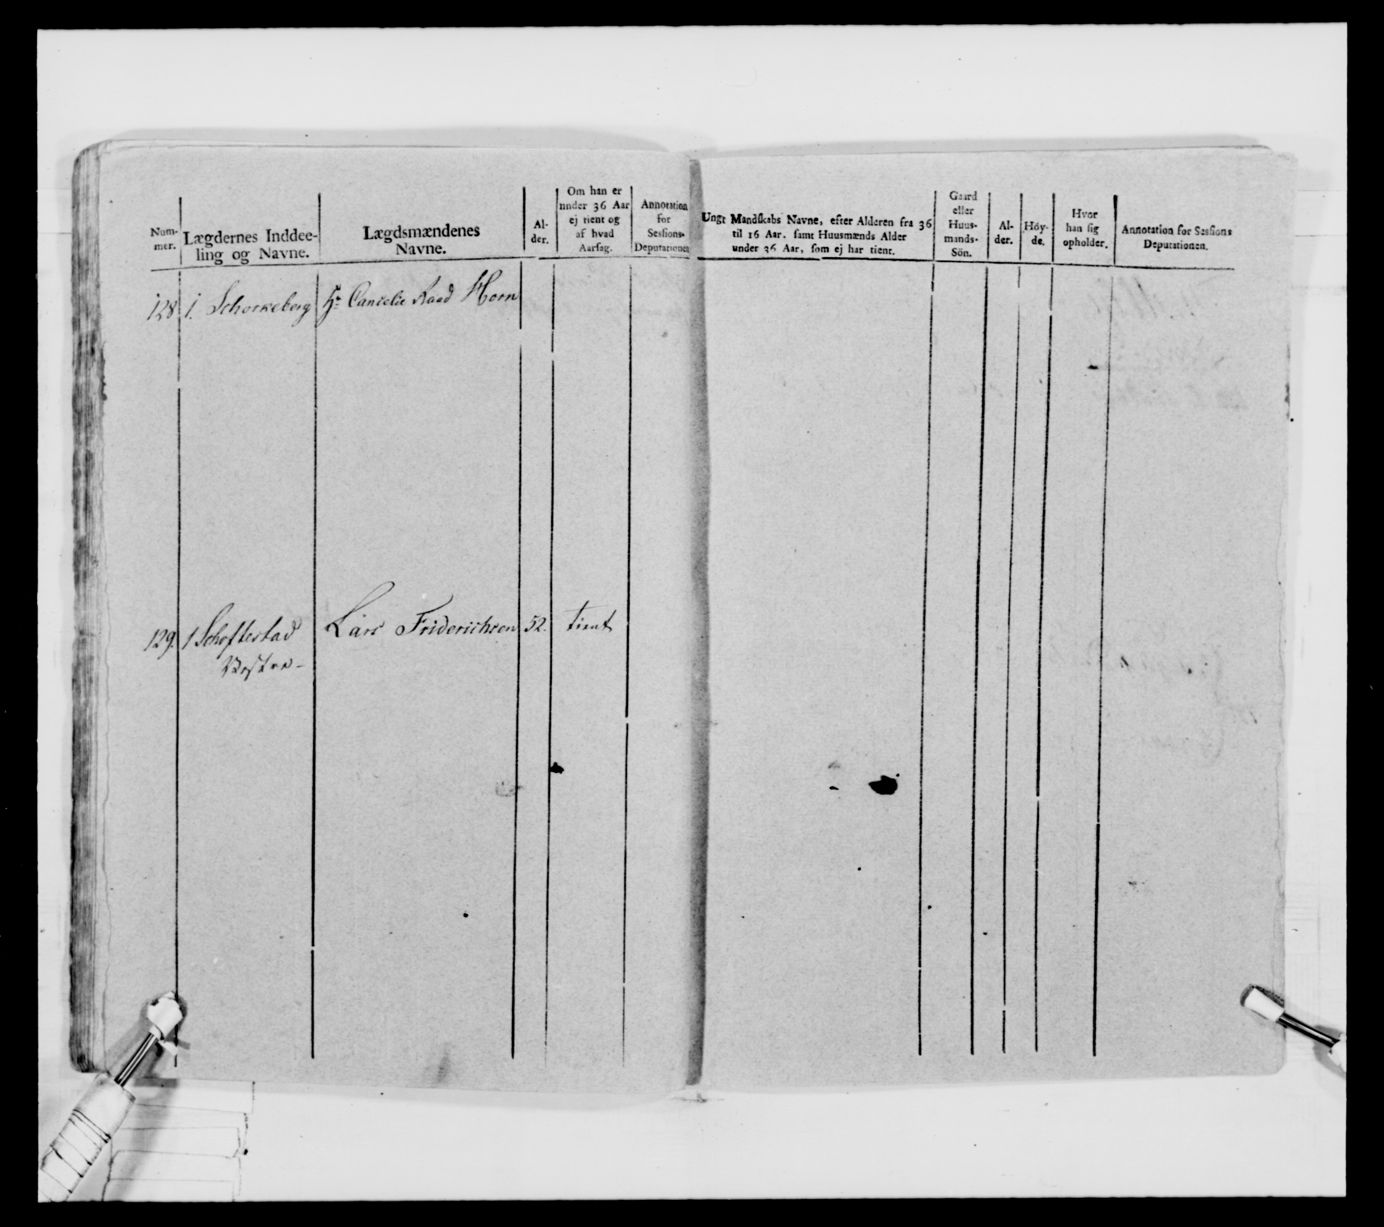 Num-
mer.
Lægdernes Inddee-
ling og Navne.
Lægdsmændenes
Navne.
Al-
der.
Om han er
under 36 Aar
ej tient og
af hvad
Aarsag.
Annotation
for
Sessions-
Deputationen
Ungt Mandskabs Navne, efter Alderen fra 36
til 16 Aar, samt Huusmænds Alder
under 36 Aar, som ej har tient.
Gaard
eller
Huus-
mands-
Sön.
Al-
der.
Höy-
de.
Hvor
han sig
opholder.
Annotation for Sessions
Deputationen.
128 1. Schorkeberg Hr Cancelie Raad Horn
129. 1 Schoftestad Lars Friderichsen 52. tient
Vestre